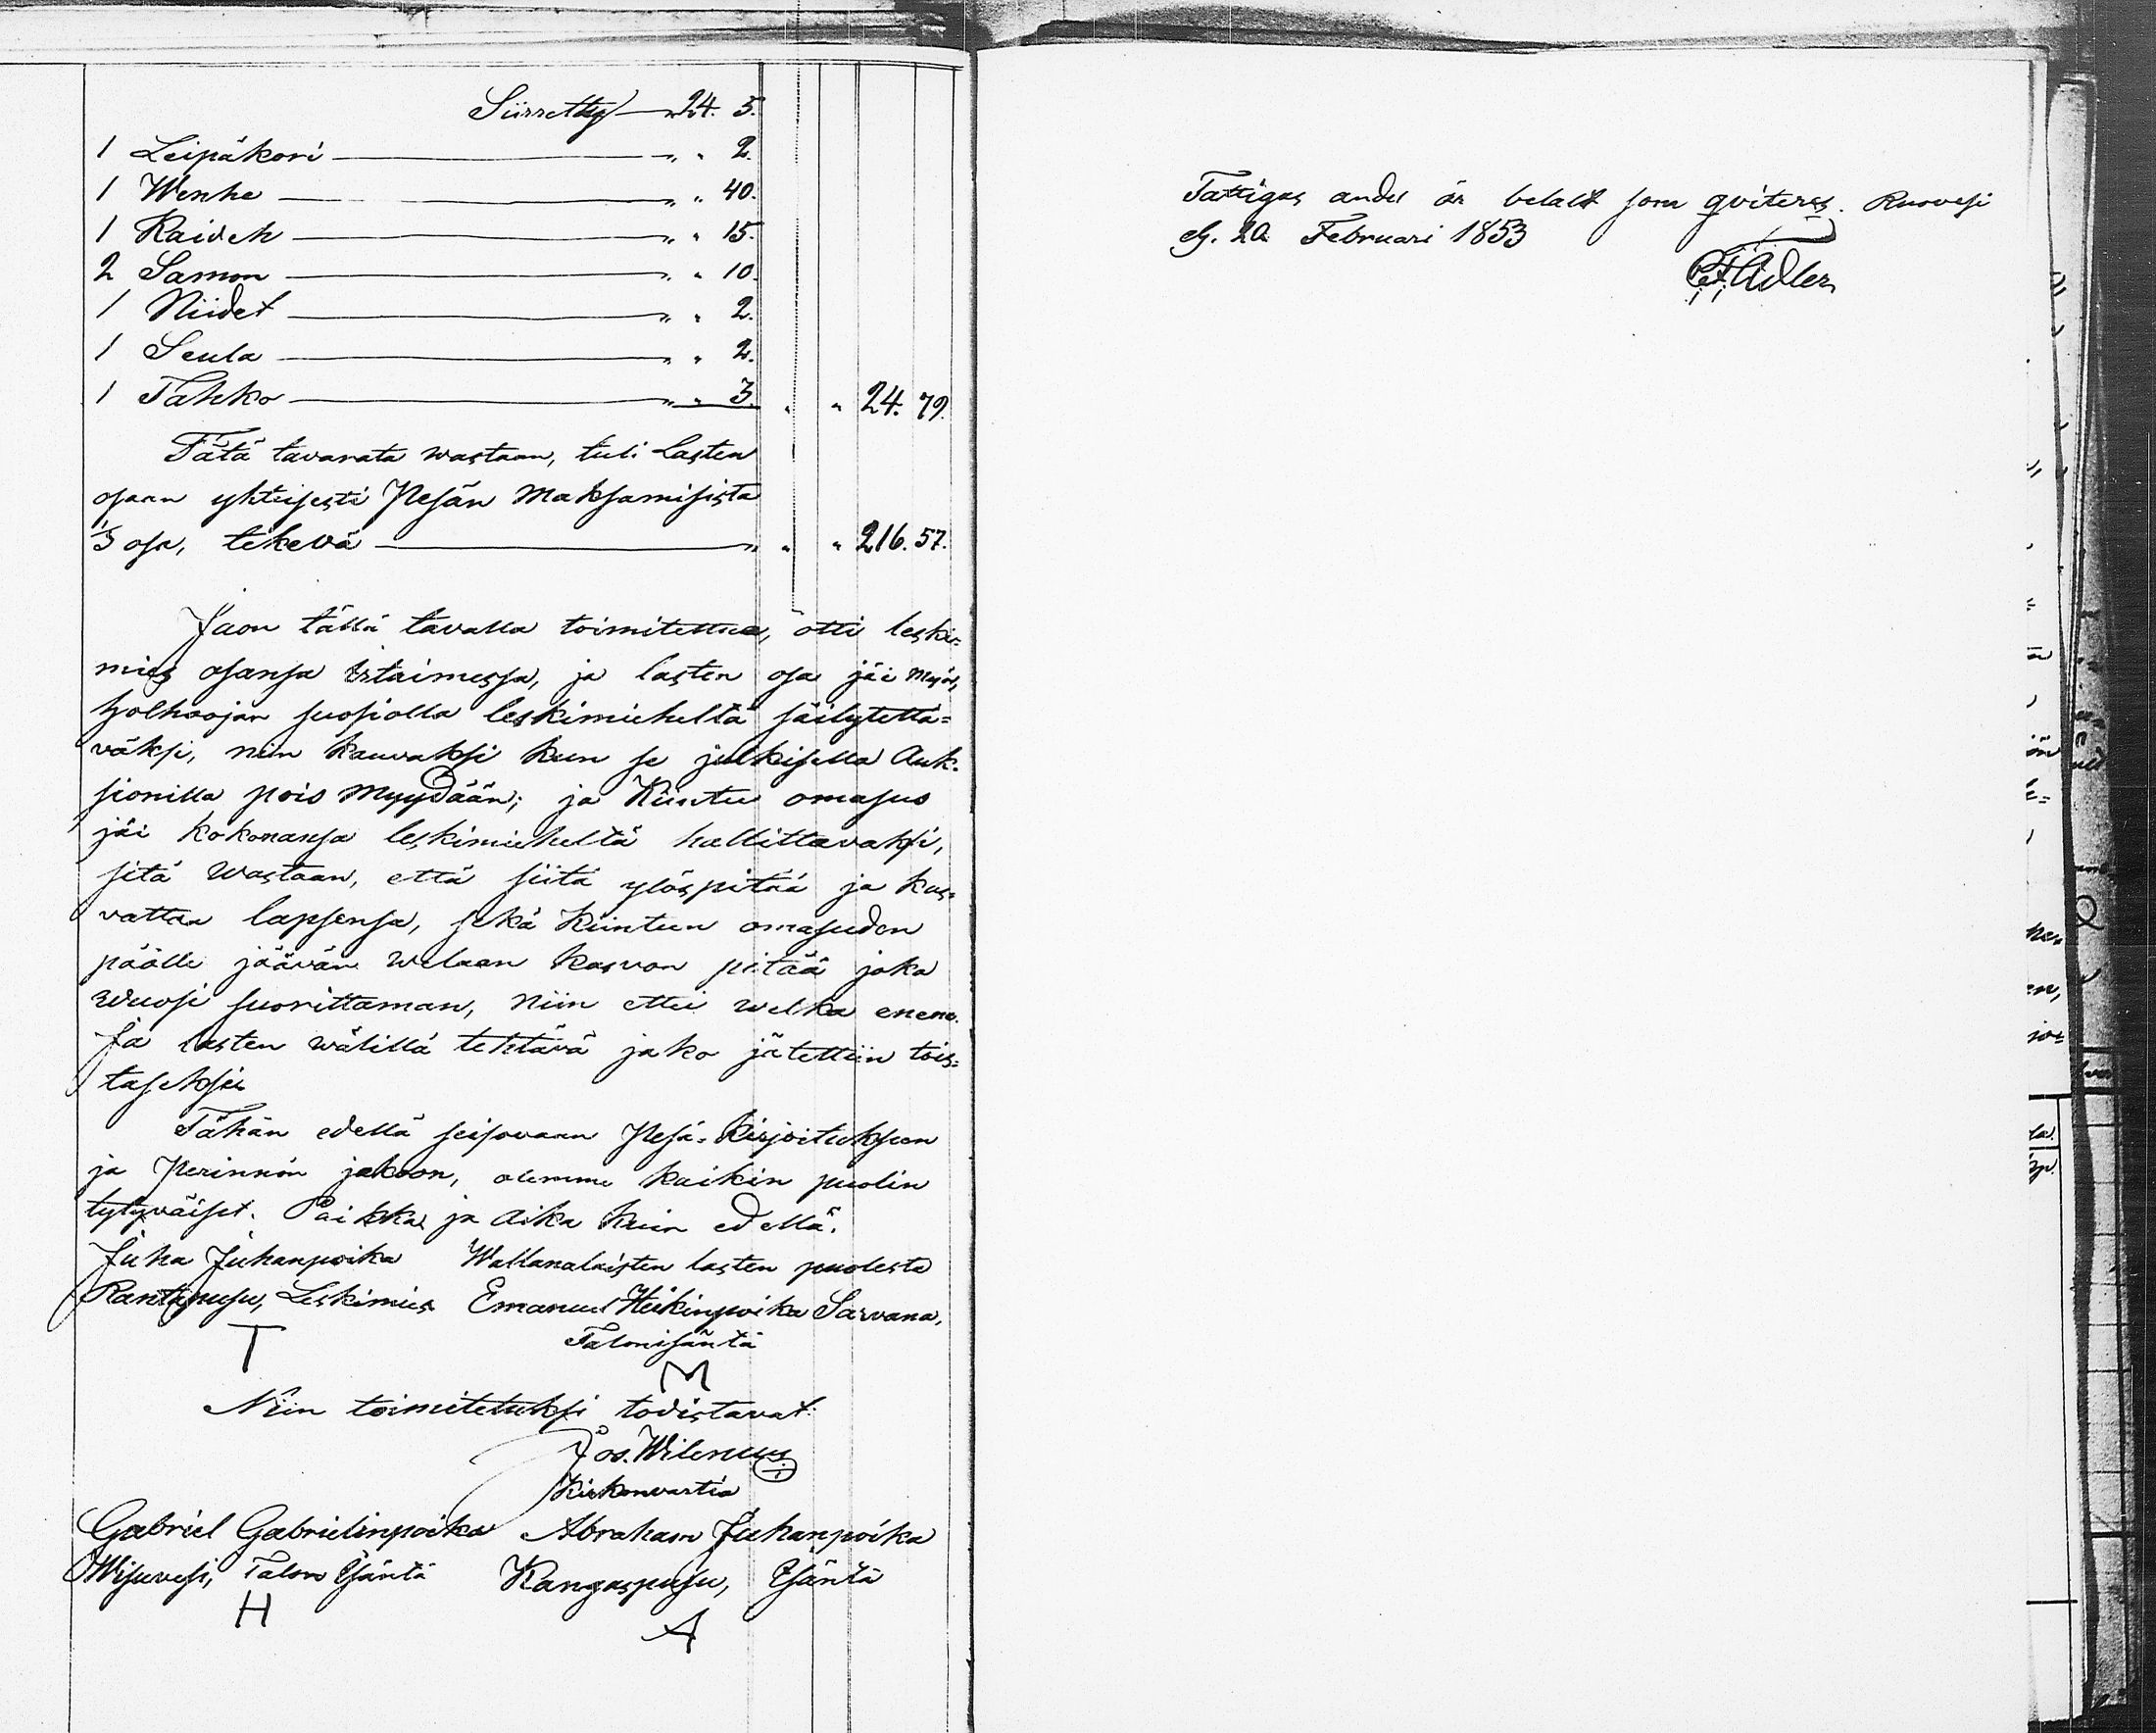 Siirretty — 24. 5.
1 Leipäkori — „ „ 2.
1 Wenhe — „ „ 40.
1 Raideh — „ „ 15.
2 Samon — „ „ 10.
1 Niidet — „ „ 2.
1 Seula — „ „ 2.
1 Tahko — „ „ 3. „ „ 24. 79.
Tätä tavarata wastaan, tuli Lasten
osaan yhteisesti Pesän Maksamisista
1/3 osa, tekevä — „ „ „ 216. 57.
Jaon tällä tavalla toimitettua, otti leski=
mies osansa irtaimessa, ja lasten osa jäi myös,
holhoojan suosiolla leskimieheltä säilytettä=
väksi, niin kauvaksi kun se julkisella Auk=
sionilla pois myydään; ja Kiintu omasus
jäi kokonansa leskimieheltä hallittavaksi,
sitä wastaan, että siitä ylöspitää ja kas=
vattaa lapsensa, sekä kiintun omasuden
päälle jäävän welaan kasvon pitää joka
wuosi suorittaman, niin ettei welka enene.
Ja lasten wälillä tehtävä jako jätettiin tois=
taseksi.
Tähän edellä seisovaan Pesä=Kirjoituksen
ja Perinnön jakoon, olemme kaikin puolin
tytyväiset. Paikka ja Aika kuin edellä.
Juha Juhanpoika Wallanalaisten lasten puolesta
Rantapusu, Leskimies Emanuel Heikinpoika Sarvana,
Talonisäntä
T M
Niin toimitetuksi todistavat:
Jos. Wilenius
Kirkonvartia
Gabriel Gabrielinpoika Abraham Juhanpoika
Wisuvesi, Talon Isäntä Kangaspusu, Isäntä
H A
Fattigas andel är betalt som qviteras. Ruovesi
d. 20. Februari 1853
Adler